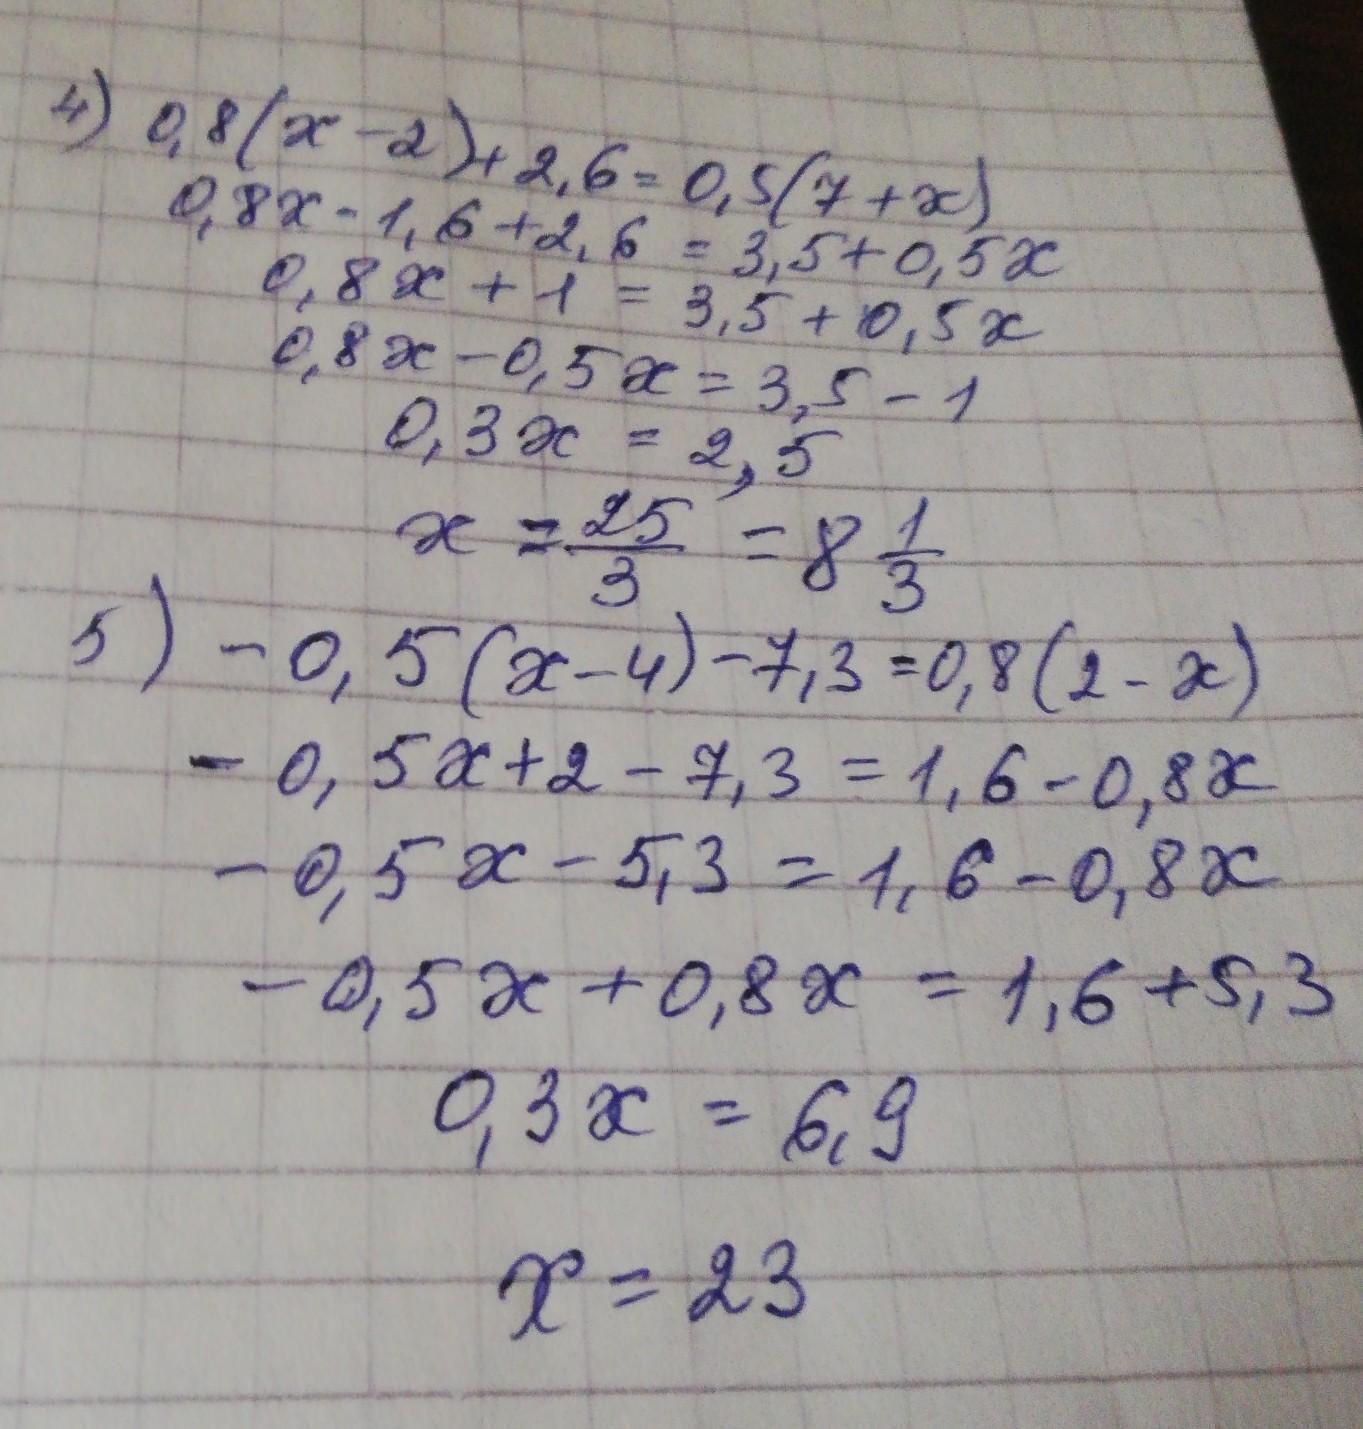 4) 0,8(x-2)+2,6=0,5(7+x)
0,8x-1,6+2,6=3,5+0,5x
0,8x+1=3,5+0,5x
0,8x-0,5x=3,5-1
0,3x=2,5
x=25/3=8 1/3
5) -0,5(x-4)-7,3=0,8(2-x)
-0,5x+2-7,3=1,6-0,8x
-0,5x-5,3=1,6-0,8x
-0,5x+0,8x=1,6+5,3
0,3x=6,9
x=23